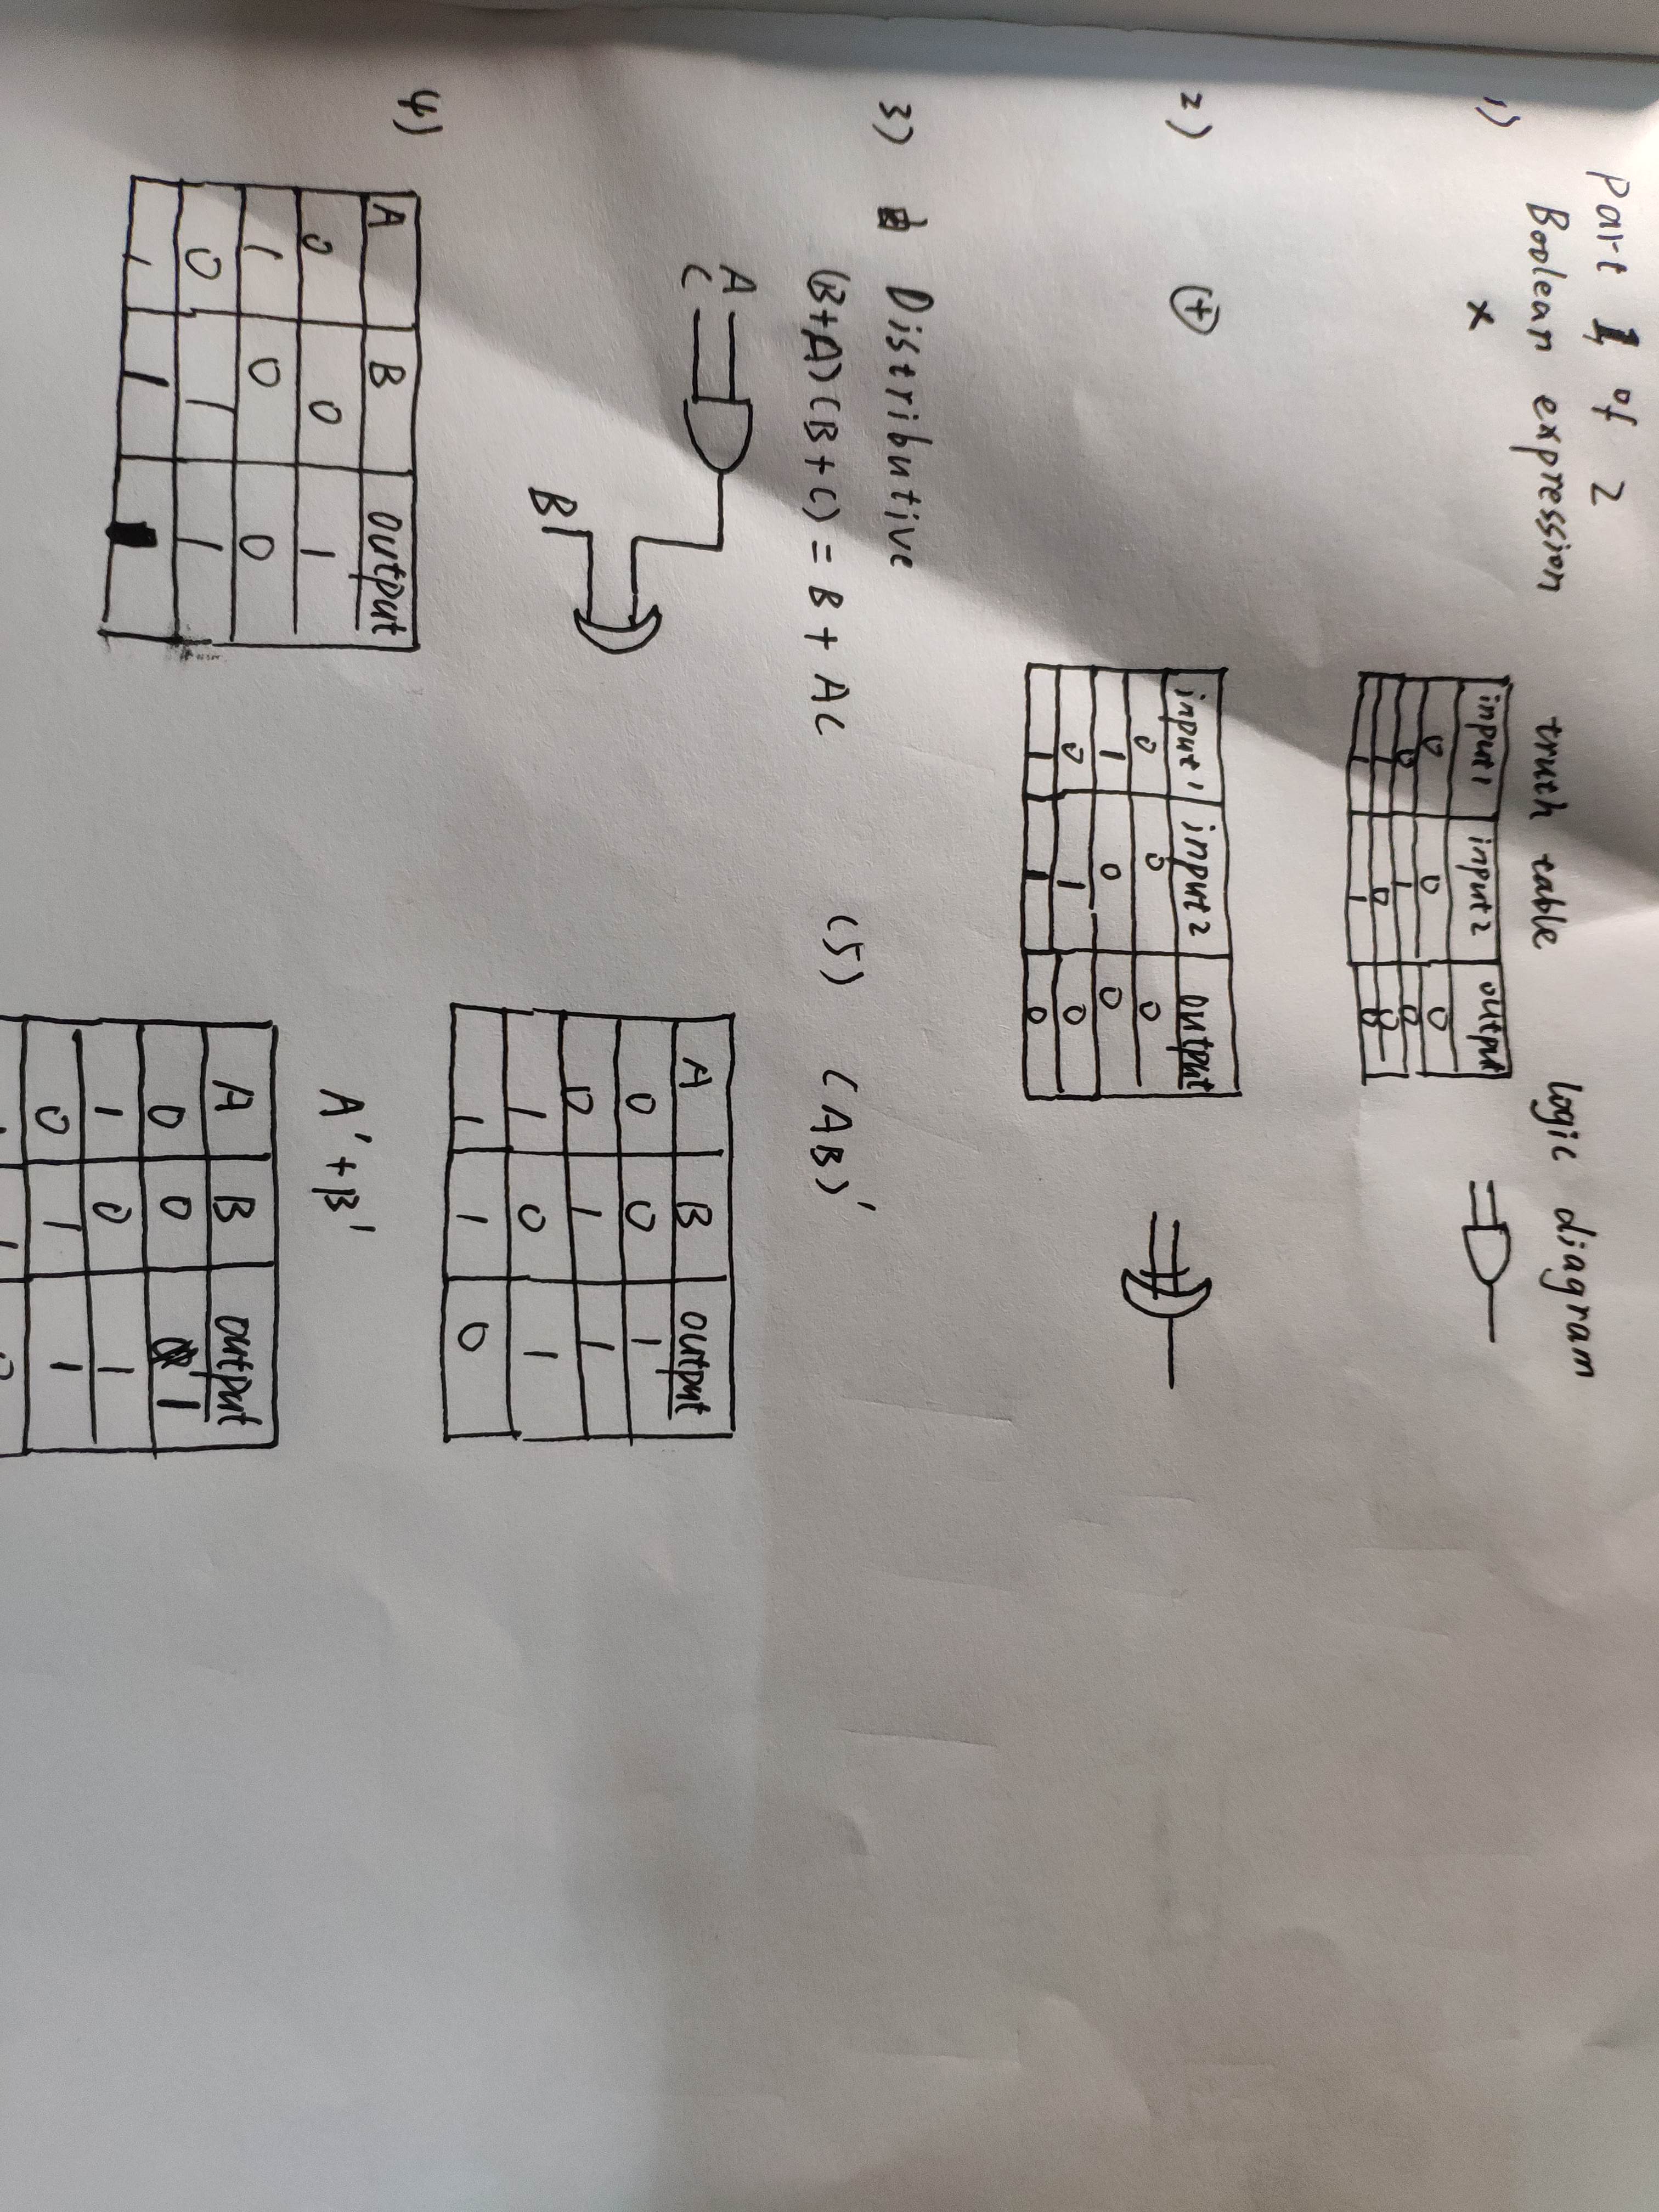 Part 1 of 2
Boolean expression truth table logic diagram
1) x
input 1 input 2 output
0 0 0
0 1 0
1 0 0
1 1
2) ⊕
input 1 input 2 output
0 0 0
1 0 0
0 1 0
1 1 0
3) Distributive
(B+A)(B+C) = B + AC
A
C
B
4)
A B output
0 0 1
1 0 0
0 1 1
1 1
(5) (AB)'
A B output
0 0 1
0 1 1
1 0 1
1 1 0
A' + B'
A B output
0 0 1
1 0 1
0 1 1